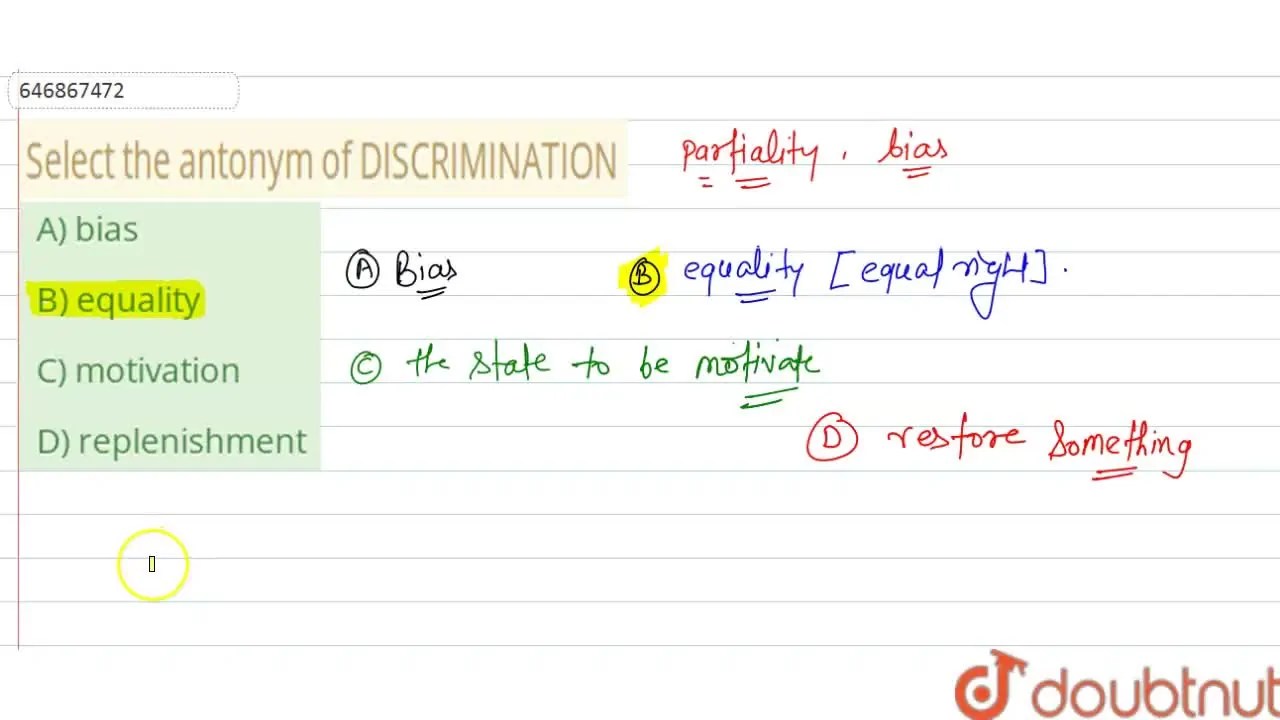 646867472
Select the antonym of DISCRIMINATION
partiality, bias
A) bias
B) equality
C) motivation
D) replenishment
Ⓐ Bias
Ⓑ equality [equal right].
Ⓒ the state to be motivate
Ⓓ restore something
doubtnut